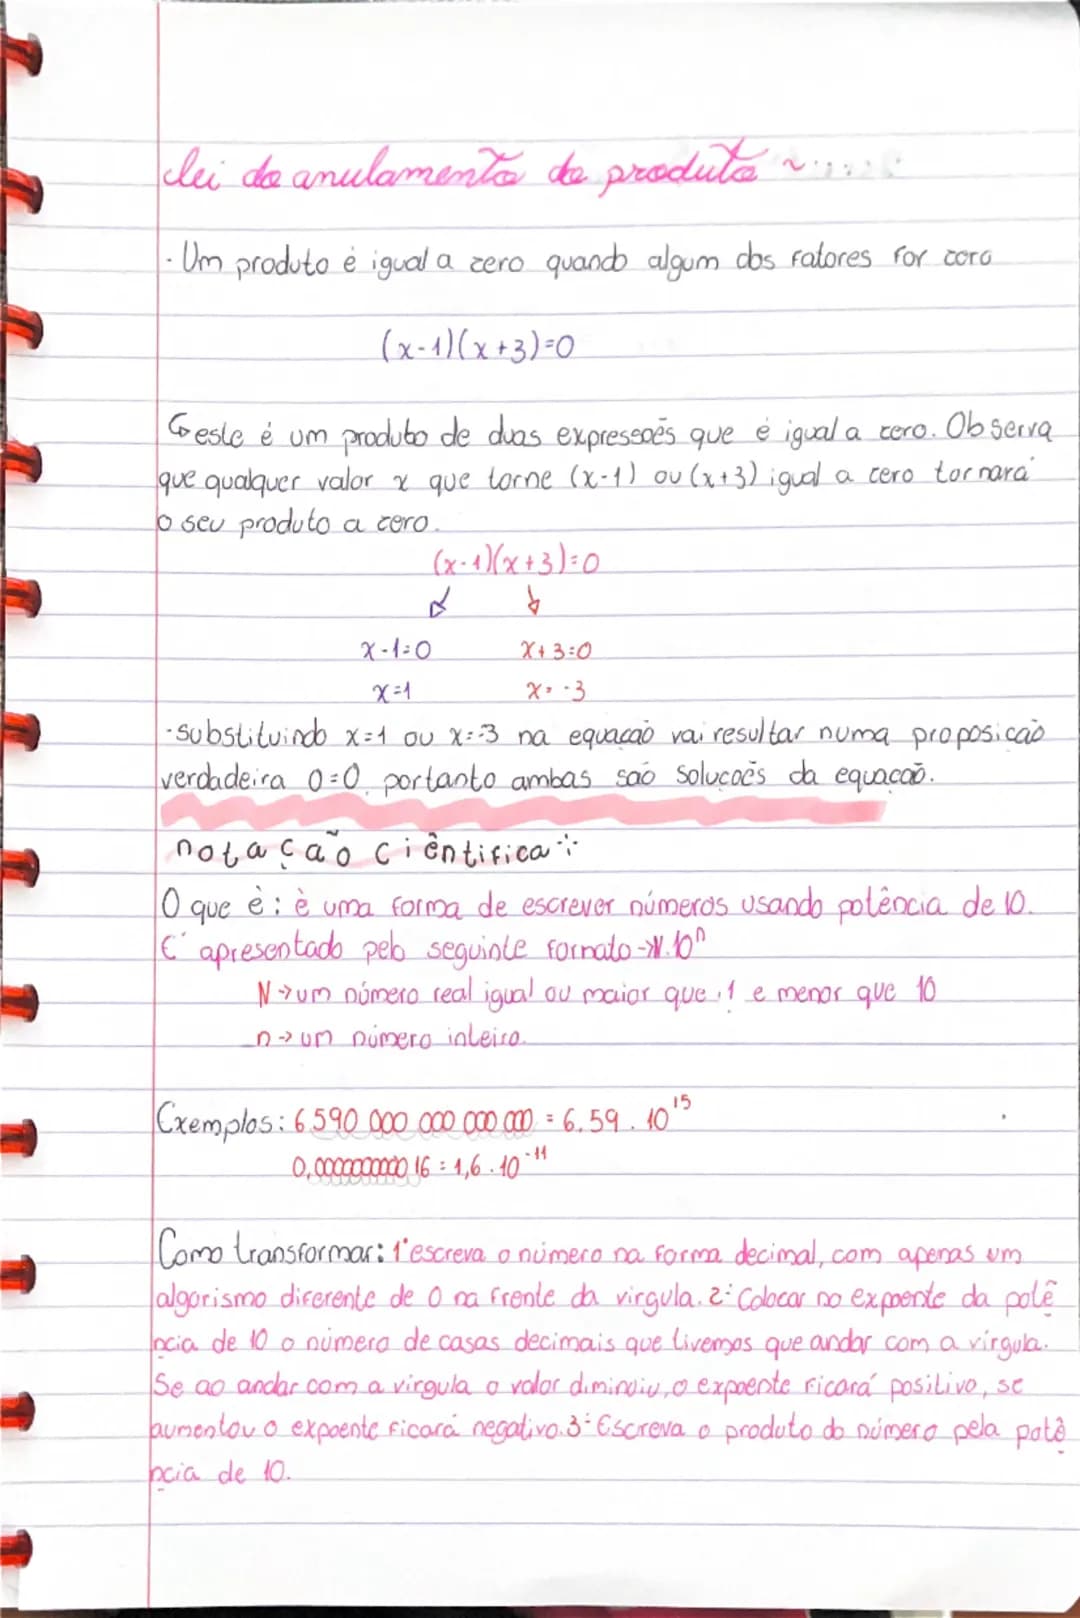 lei do anulamento do produto ~
· Um produto é igual a zero quando algum dos fatores for zero
(x-1)(x+3)=0
↳ este é um produto de duas expresseoẽs que é igual a zero. Observa
que qualquer valor x que torne (x-1) ou (x+3) igual a zero tornará
o seu produto a zero.
(x-1)(x+3)=0
↓ ↓
x-1=0 x+3=0
x=1 x=-3
·substituindo x=1 ou x=-3 na equação vai resultar numa proposicão
verdadeira 0=0, portanto ambas são soluçoẽs da equação.
notação ciêntifica
O que è: è uma forma de escrever números usando potência de 10.
É apresentado pelo seguinte formato → N.10ⁿ
N → um número real igual ou maior que 1 e menor que 10
n → um número inteiro.
Exemplos: 6 590 000 000 000 000 = 6,59 . 10¹⁵
0,000000000016 = 1,6 . 10⁻¹¹
Como transformar: 1º escreva o número na forma decimal, com apenas um
algorismo diferente de 0 na frente da virgula. 2º Colocar no expoente da potê
ncia de 10 o número de casas decimais que tivemos que andar com a vírgula.
Se ao andar com a virgula o valor diminuiu, o expoente ficará positivo, se
aumentou o expoente ficará negativo. 3º Escreva o produto do número pela potê
ncia de 10.